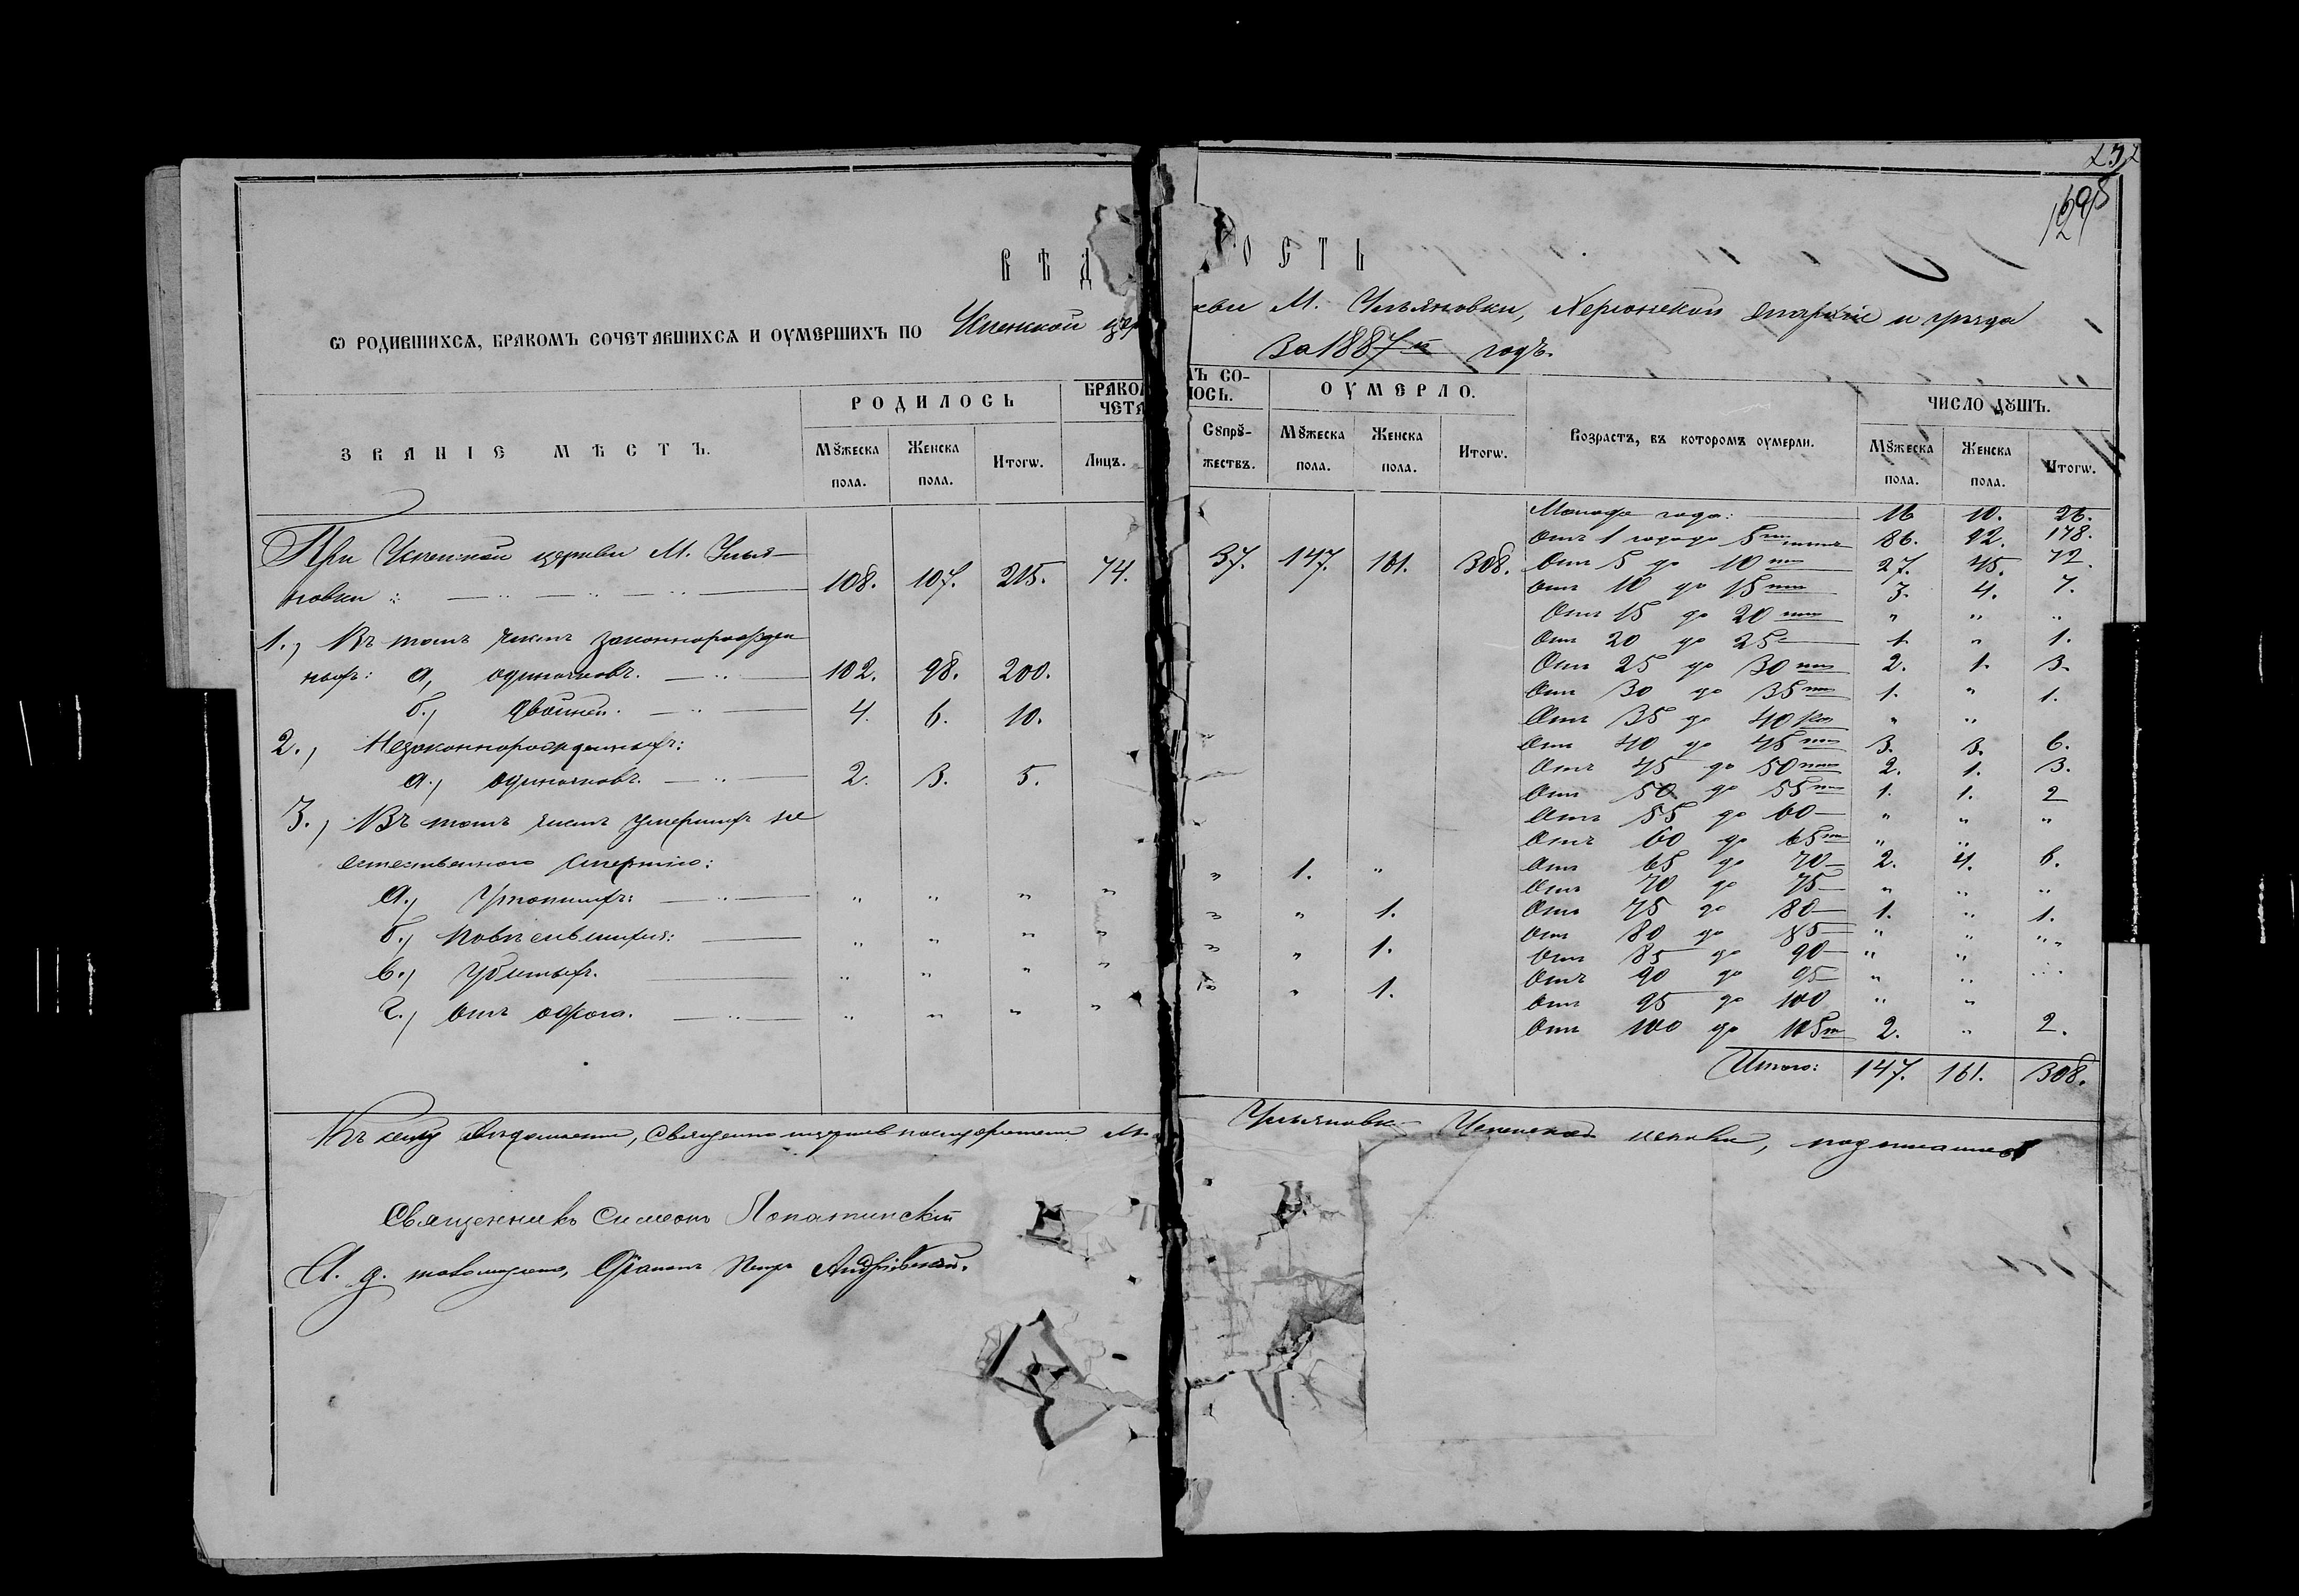 232
1298
ВѢД ОСТЬ
Ѡ РОДИВШИХСѦ, БРАКОМЪ СОЧЕТАВШИХСѦ И ОУМЕРШИХЪ ПО Успенской цер кви М. Ульяновки, Херсонской Епархіи и уѣзда
За 1887й годъ.
ЗВАНІЕ МѢСТЪ. РОДИЛОСЬ БРАКОМ ЧЕТА ЛЪ СО- ЛОСЬ. ОУМЕРЛО. Возрастъ, въ которомъ оумерли. ЧИСЛО ДꙋШЪ.
Мꙋжеска пола. Женска пола. Итогѡ. Лицъ. Сꙋпрꙋ- жествъ. Мꙋжеска пола. Женска пола. Итогѡ. Мꙋжеска пола. Женска пола. Итогѡ.
При Успенской церкви М. Улья-
новки: 108. 107. 215. 74. 37. 147. 161. 308.
1., Въ томъ числѣ законнорожден
ныхъ: а, одиночковъ. 102. 98. 200.
б., двойней. 4. 6. 10.
2., Незаконнорожденныхъ:
а., одиночковъ. 2. 3. 5.
3., Въ томъ числѣ умершихъ не
естественною смертію:
а., Утопшихъ: " " " " " 1. "
б., повѣсившихся: " " " " " " 1.
в., Убитыхъ. " " " " " " 1.
г., Отъ ожога. " " " " " 1.
Моложе года: 16 10. 26.
Отъ 1 года до 5ти лѣтъ 86. 92. 178.
Отъ 5 до 10ти 27. 45. 72.
Отъ 10 до 15ти 3. 4. 7.
Отъ 15 до 20ти " " "
Отъ 20 до 25 1. " 1.
Отъ 25 до 30ти 2. 1. 3.
Отъ 30 до 35ти 1. " 1.
Отъ 35 до 40 " "
Отъ 40 до 45ти 3. 3. 6.
Отъ 45 до 50ти 2. 1. 3.
Отъ 50 до 55ти 1. 1. 2
Отъ 55 до 60 " " "
Отъ 60 до 65ти " "
Отъ 65 до 70 2. 4. 6.
Отъ 70 до 75 " " "
Отъ 75 до 80 1. " 1.
Отъ 80 до 85 " " "
Отъ 85 до 90 " "
Отъ 90 до 95 " " "
Отъ 95 до 100 " "
Отъ 100 до 105ти 2. " 2.
Итого: 147. 161. 308.
Къ сей Вѣдомости, священно церковнослужители М. Ульяновки Успенской церкви, подписались
Священникъ Симеонъ Лопатинскій
И. д. псаломщика, Діаконъ Петръ Андріевскій.